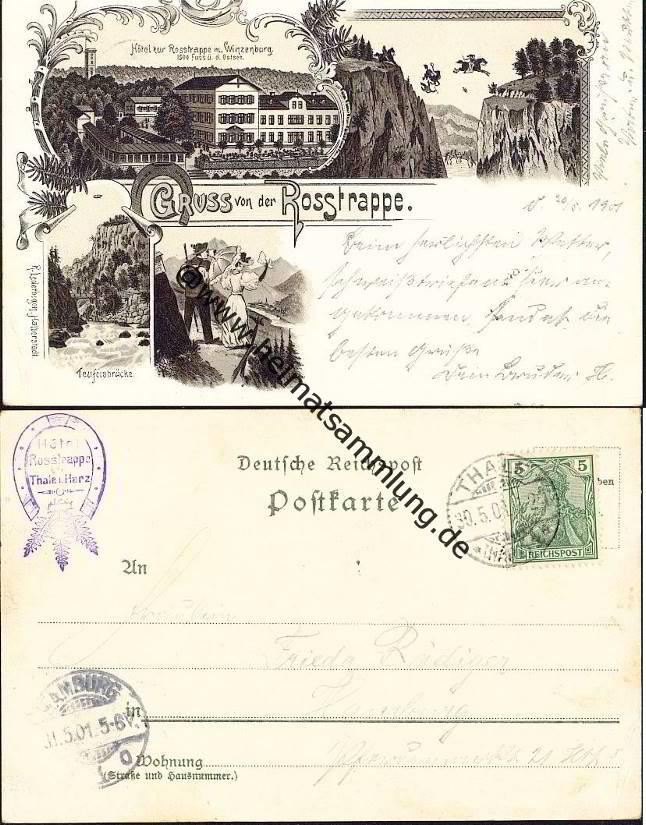 Hôtel zur Rosstrappe m. Winzenburg.
1500 Fuss ü. d. Ostsee.
GRUSS von der Rosstrappe.
Teufelsbrücke.
d. 30/5. 1901
Beim herlichsten Wetter,
schweißtriefend hier an-
gekommen, sendet die
besten Grüße
Dein Bruder H.
©www.heimatsammlung.de
Hôtel
Rosstrappe
Thale i. Harz
Deutsche Reichspost
Postkarte
THALE
30.5.01
5 5
REICHSPOST
ben
An
Fräulein
Frieda Rädiger
in Hamburg
HAMBURG
31.5.01. 5-6N.
Wohnung
(Straße und Hausnummer.)